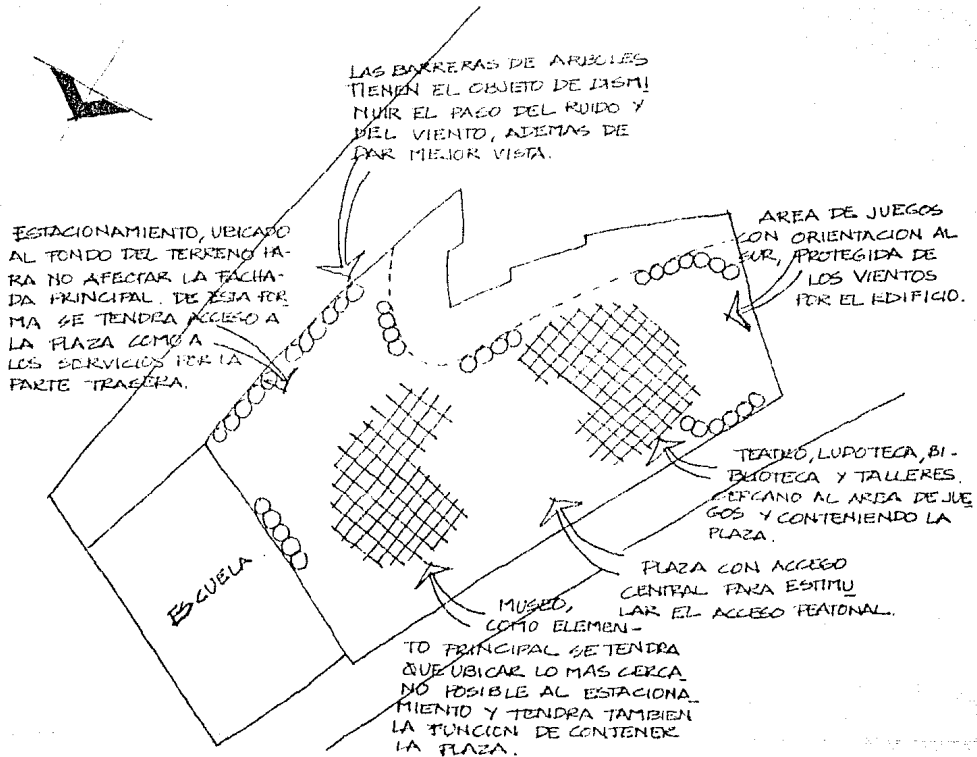 LAS BARRERAS DE ARBOLES
TIENEN EL OBJETO DE DISMI
NUIR EL PASO DEL RUIDO Y
DEL VIENTO, ADEMAS DE
DAR MEJOR VISTA.
ESTACIONAMIENTO, UBICADO
AL FONDO DEL TERRENO PA-
RA NO AFECTAR LA FACHA-
DA PRINCIPAL. DE ESTA FOR
MA SE TENDRA ACCESO A
LA PLAZA COMO A
LOS SERVICIOS POR LA
PARTE TRASERA.
AREA DE JUEGOS
CON ORIENTACION AL
SUR, PROTEGIDA DE
LOS VIENTOS
POR EL EDIFICIO.
TEATRO, LUDOTECA, BI-
BLIOTECA Y TALLERES.
CERCANO AL AREA DE JUE
GOS Y CONTENIENDO LA
PLAZA.
PLAZA CON ACCESO
CENTRAL PARA ESTIMU
LAR EL ACCESO PEATONAL.
ESCUELA
MUSEO,
COMO ELEMEN-
TO PRINCIPAL SE TENDRA
QUE UBICAR LO MAS CERCA
NO POSIBLE AL ESTACIONA
MIENTO Y TENDRA TAMBIEN
LA FUNCION DE CONTENER
LA PLAZA.